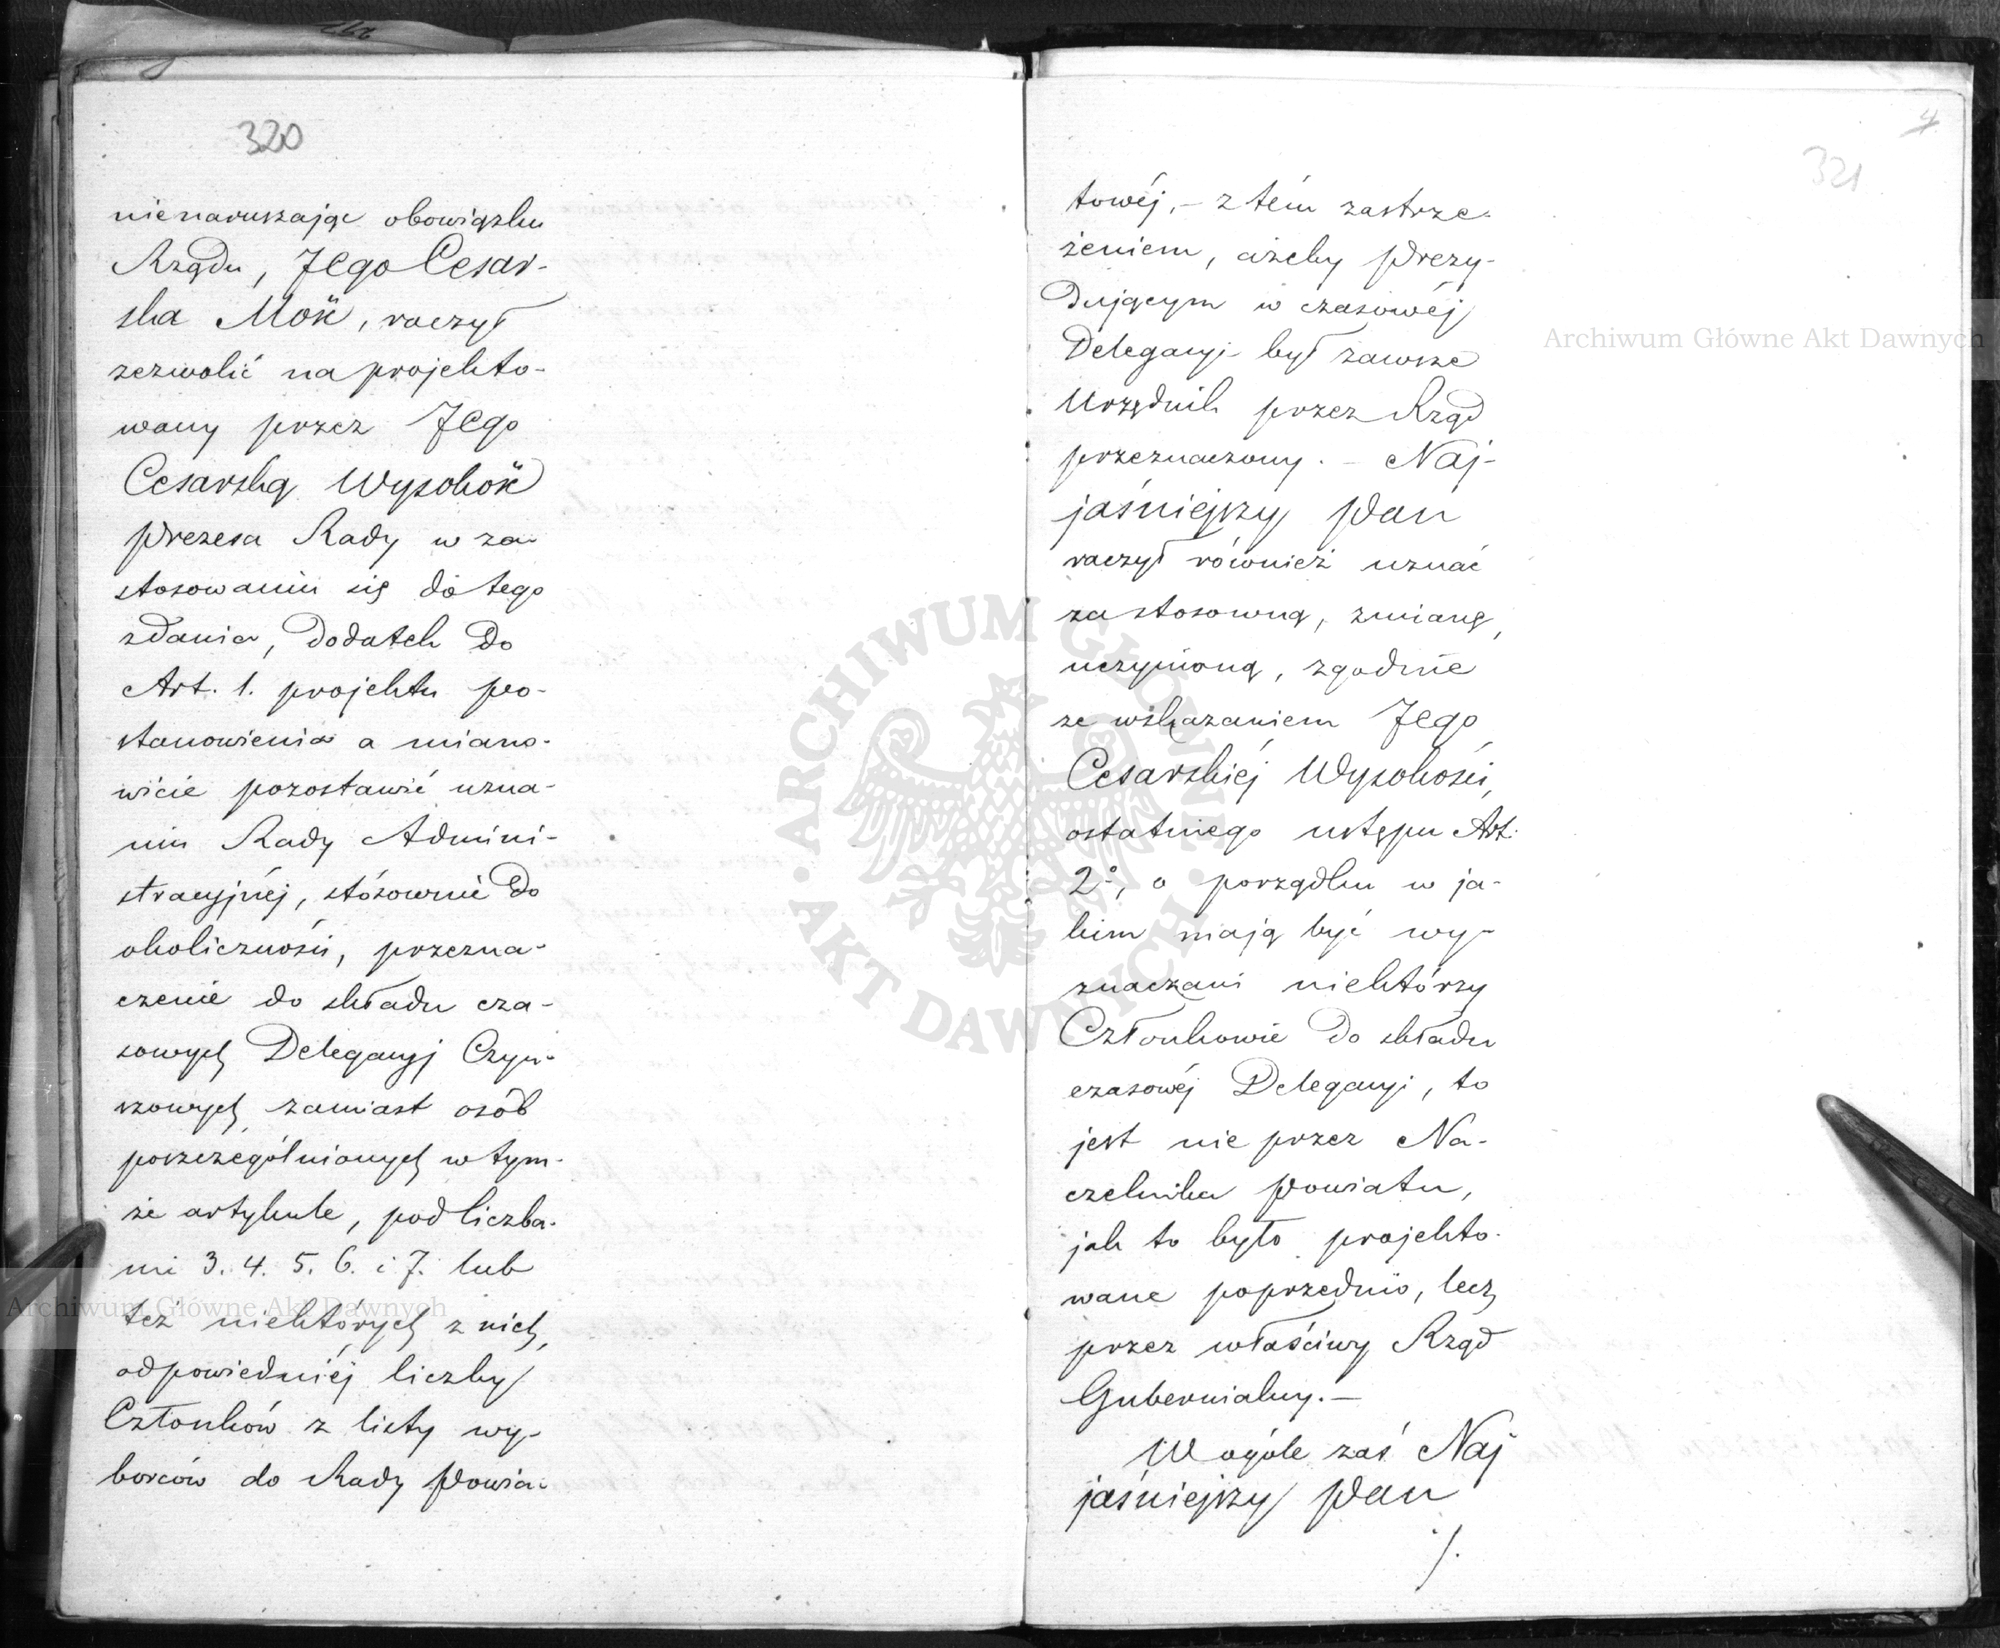 320
nienaruszając obowiązku
Rządu, Jego Cesar-
ska Mość, raczył
zezwolić na projekto-
wany przez Jego
Cesarską Wysokość
Prezesa Rady w za-
stosowaniu się do tego
zdania, dodatek do
Art. 1. projektu po-
stanowienia a miano-
wicie pozostawić uzna-
niu Rady Admini-
stracyjnéj, stósownie do
okoliczności, przezna-
czenie do składu cza-
sowych Delegacyj Czyn-
szowych zamiast osób
poszczególnionych w tym-
że artykule, pod liczba-
mi 3. 4. 5. 6. i 7. lub
też niektórych z nich,
odpowiedniéj liczby
Członków z listy wy-
borców do Rady Powia-
4
321
towéj, – z tém zastrze-
żeniem, ażeby Prezy-
dującym w czasowéj
Delegacyi był zawsze
Urzędnik przez Rząd
przeznaczony. – Naj-
jaśniejszy Pan
raczył również uznać
za stosowną, zmianę,
uczynioną, zgodnie
ze wskazaniem Jego
Cesarskiéj Wysokości,
ostatniego ustępu Art.
2º, o porządku w ja-
kim mają być wy-
znaczani niektórzy
Członkowie do składu
czasowéj Delegacyi, to
jest nie przez Na-
czelnika Powiatu,
jak to było projekto-
wane poprzednio, lecz
przez właściwy Rząd
Gubernialny. –
W ogóle zaś Naj
jaśniejszy Pan
./.
Archiwum Główne Akt Dawnych
Archiwum Główne Akt Dawnych
ARCHIWUM GŁÓWNE
AKT DAWNYCH